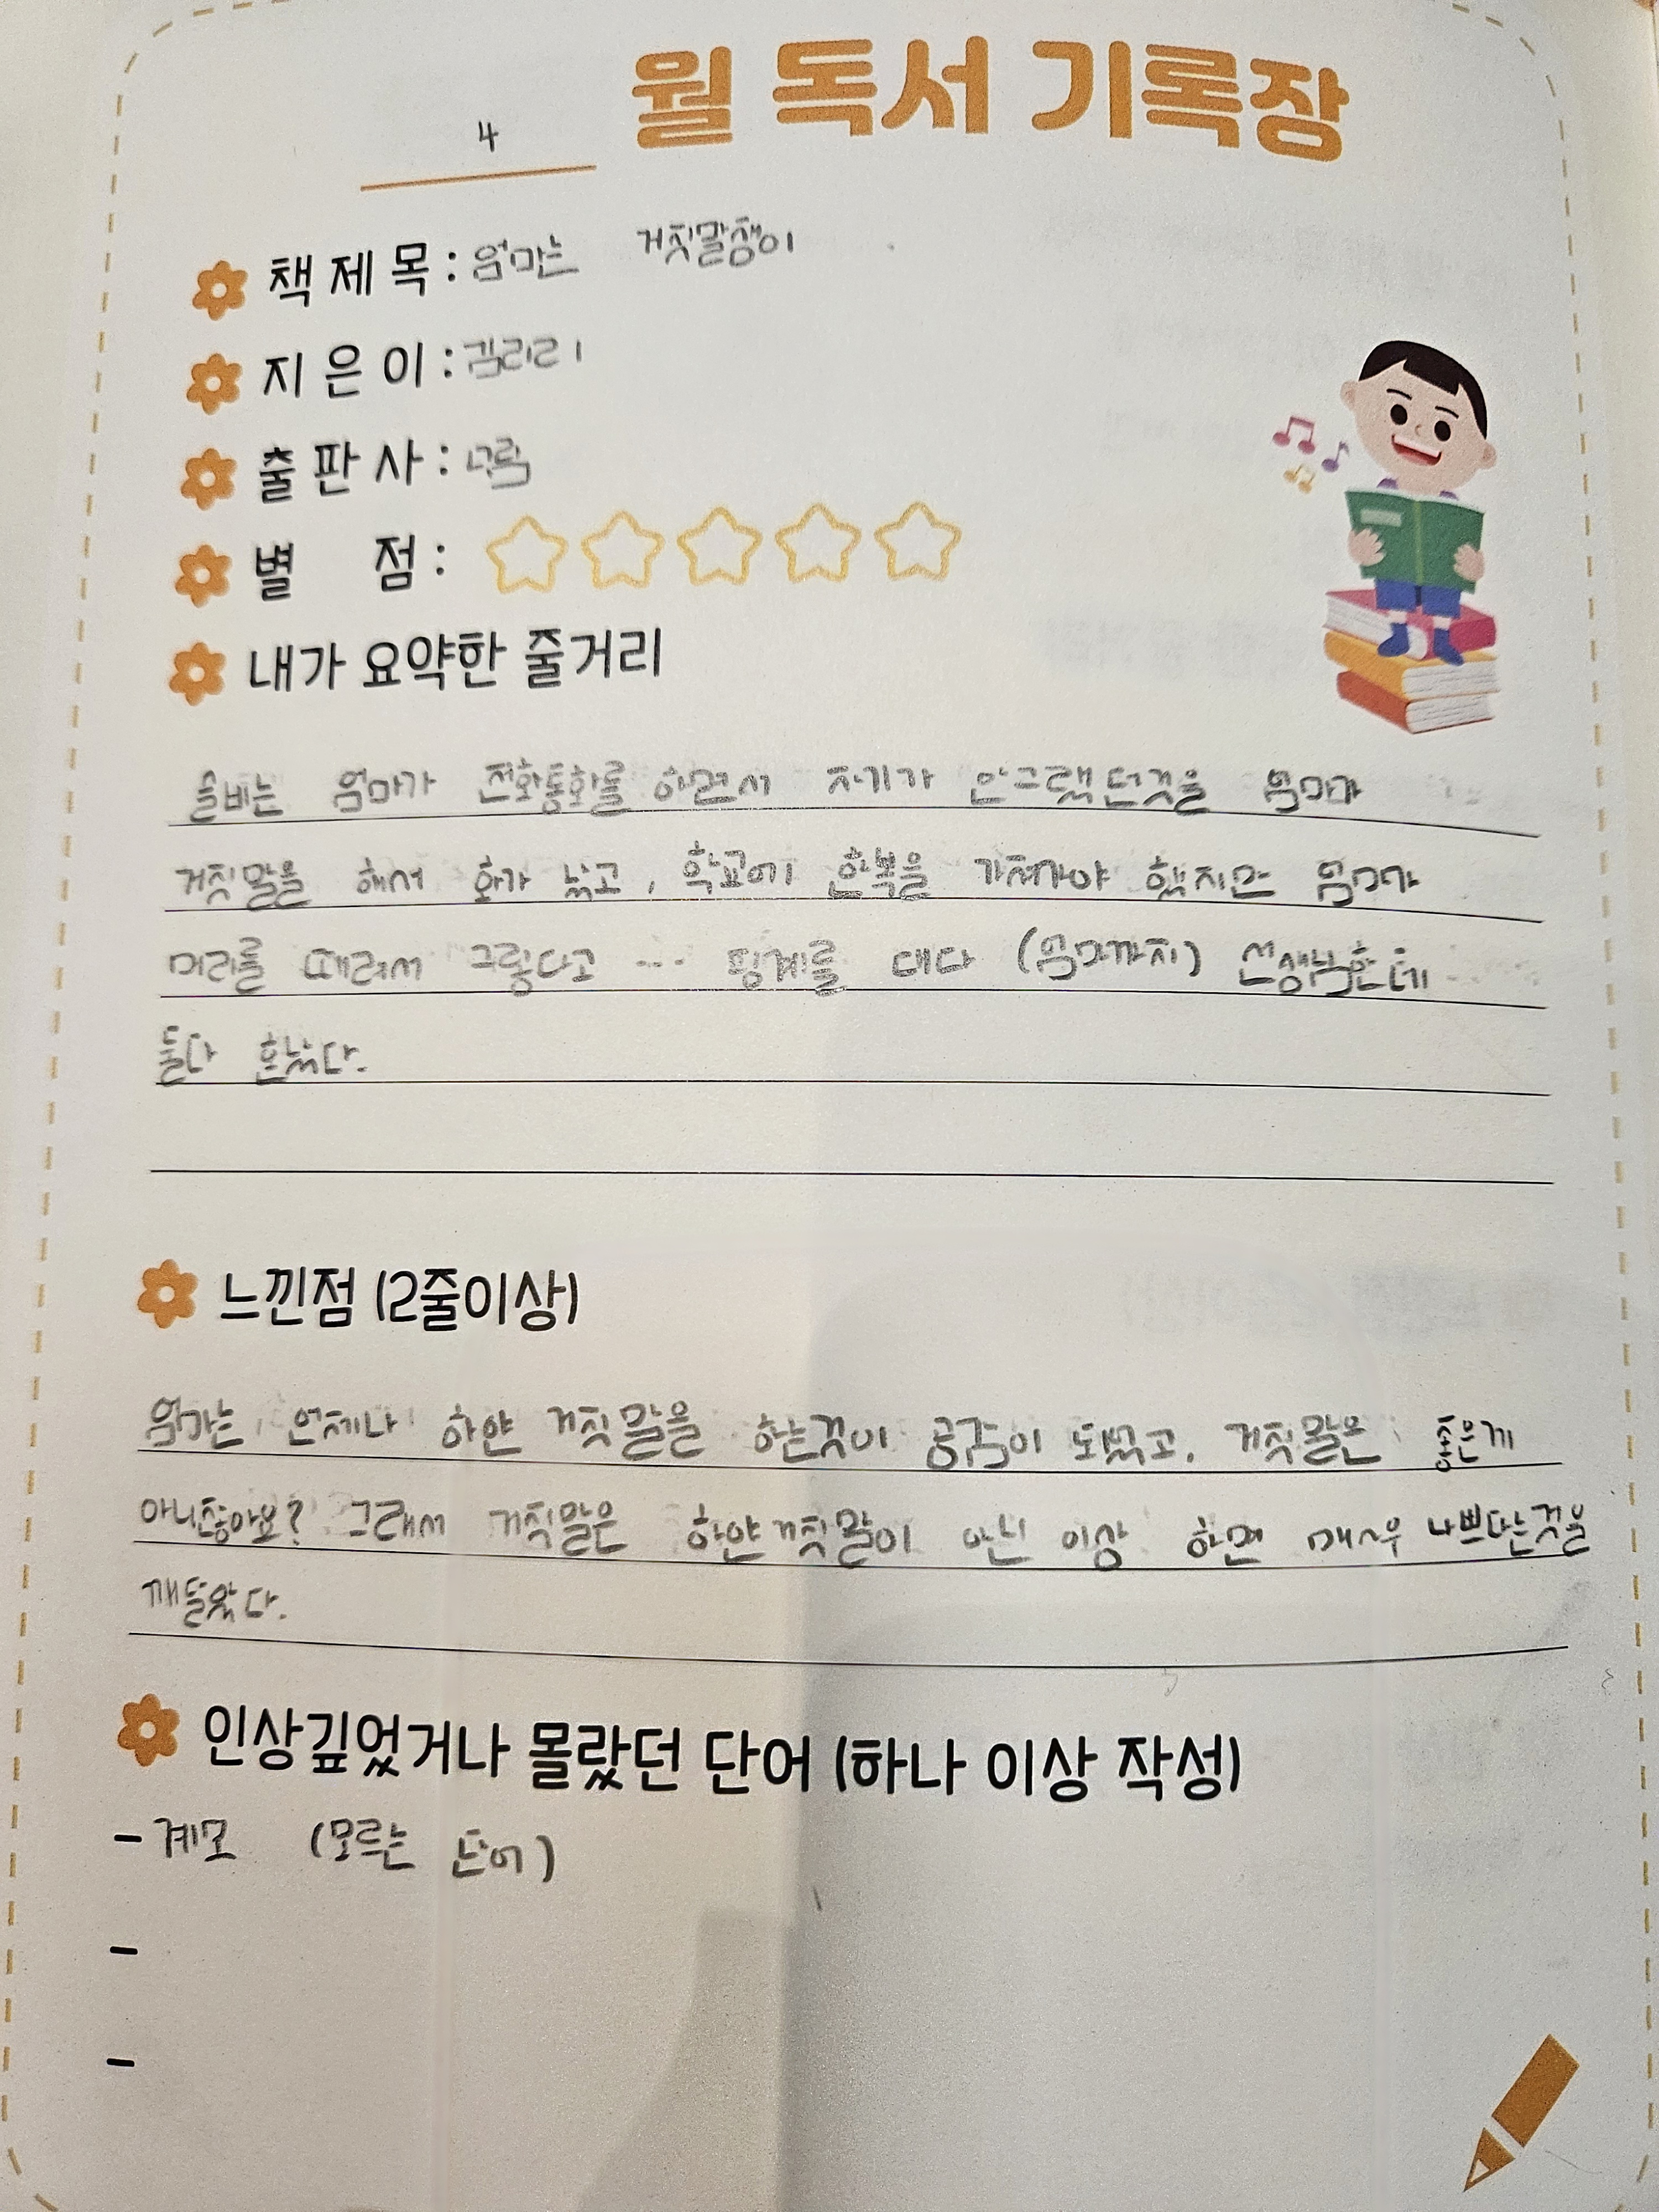 4 월 독서 기록장
책 제 목 : 엄마는 거짓말쟁이
지 은 이 : 김리리
출 판 사 :
별 점 :
내가 요약한 줄거리
슬비는 엄마가 전화통화를 하면서 자기가 안그랬던것을 엄마가
거짓말을 해서 화가 났고, 학교에 한복을 가져가야 했지만 엄마가
머리를 때려서 그렇다고 … 핑계를 대다 (엄마까지) 선생님한테
둘다 혼났다.
느낀점 (2줄이상)
엄마는 언제나 하얀 거짓말을 하는것이 공감이 되었고, 거짓말은 좋은게
아니잖아요? 그래서 거짓말은 하얀거짓말이 아닌 이상 하면 매우 나쁘다는것을
깨달았다.
인상깊었거나 몰랐던 단어 (하나 이상 작성)
- 계모 (모르는 단어)
-
-